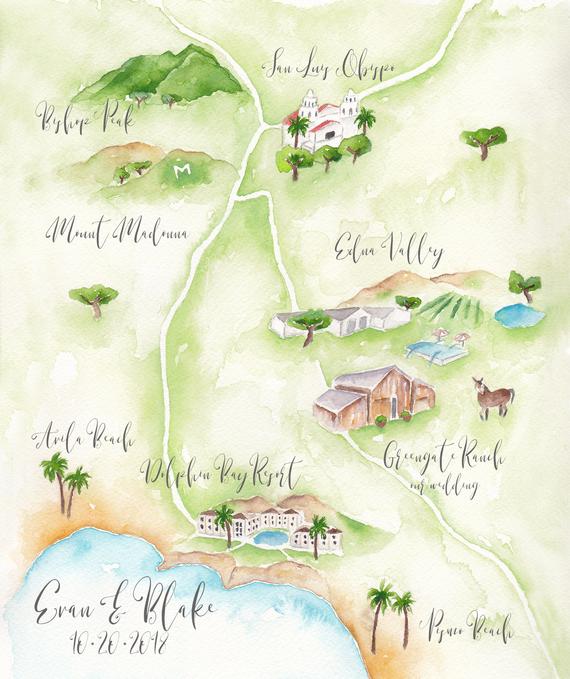 San Luis Obispo
Bishop Peak
M
Mount Madonna
Edna Valley
Avila Beach
Dolphin Bay Resort
Greengate Ranch
our wedding
Evan & Blake
10·20·2018
Pismo Beach